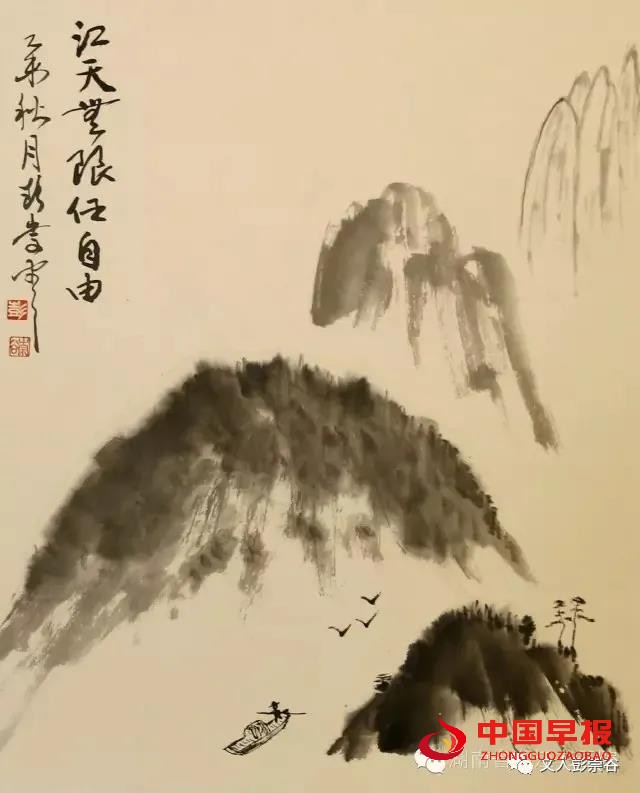 江天無限任自由
乙未秋月彭崇谷
彭
中国早报
ZHONGGUOZAOBAO
湖南
文人彭崇谷